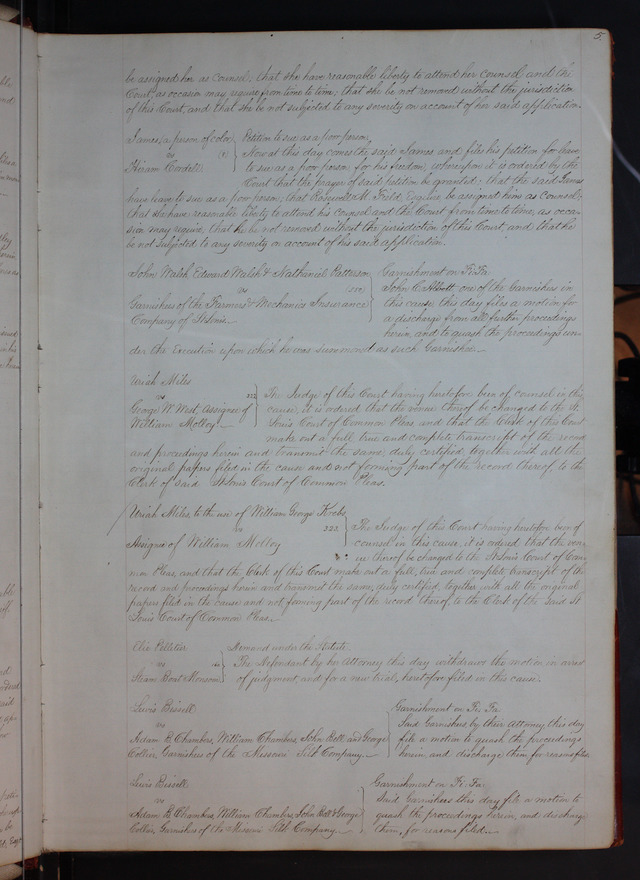 5
be assigned her as counsel; that she have reasonable liberty to attend her counsel and the
Court, as occasion may require from time to time; that she be not removed without the jurisdiction
of this Court, and that she be not subjected to any severity on account of her said application.
James, a person of color,
vs
Hiram Cordell
Petition to sue as a poor person.
Now at this day comes the said James and files his petition for leave
to sue as a poor person for his freedom; whereupon it is ordered by the
Court that the prayer of said petition be granted; that the said James
have leave to sue as a poor person; that Roswell M. Field, Esquire be assigned him as counsel;
that he have reasonable liberty to attend his counsel and the Court from time to time, as occa-
sion may require, that he be not removed without the jurisdiction of this Court, and that he
be not subjected to any severity on account of his said application.
John Walsh, Edward Walsh & Nathaniel Patterson
vs
Garnishees of the Farmers & Mechanics Insurance
Company of St. Louis.
Garnishment on Fi. Fa.
John C. Abbott one of the Garnishees in
this cause this day files a motion for
a discharge from all further proceedings
herein, and to quash the proceedings un-
der the Execution upon which he was summoned as such Garnishee.
Uriah Miles
vs
George W. West, Assignee of
William Molloy
The Judge of this Court having heretofore been of counsel in this
cause, it is ordered that the venue thereof be changed to the St.
Louis Court of Common Pleas, and that the Clerk of this Court
make out a full, true and complete transcript of the record
and proceedings herein and transmit the same, duly certified, together with all the
original papers filed in the cause and not forming part of the record thereof to the
Clerk of said St. Louis Court of Common Pleas.
Uriah Miles, to the use of William George Krebs
vs 323
Assignee of William Molloy
The Judge of this Court having heretofore been of
counsel in this cause, it is ordered, that the ven-
ue thereof be changed to the St. Louis Court of Com-
mon Pleas, and that the Clerk of this Court make out a full, true and complete transcript of the
record and proceedings herein and transmit the same, duly certified, together with all the original
papers filed in the cause and not forming part of the record thereof, to the Clerk of the said St
Louis Court of Common Pleas.
Elie Pelletier
vs
Steam Boat Monsoon
Demand under the Statute.
The Defendant by her Attorney this day withdraws the motion in arrest
of judgment, and for a new trial, heretofore filed in this cause.
Lewis Bissell
vs
Adam B. Chambers, William Chambers, John Bott and George
Collier, Garnishees of the Missouri Silk Company.
Garnishment on Fi. Fa.
Said Garnishees, by their Attorney this day
file a motion to quash the proceedings
herein, and discharge them for reasons filed.
Lewis Bissell
vs
Adam B. Chambers, William Chambers, John Bott & George
Collier, Garnishees of the Missouri Silk Company.
Garnishment on Fi. Fa.
Said Garnishees this day file a motion to
quash the proceedings herein, and discharge
them, for reasons filed.